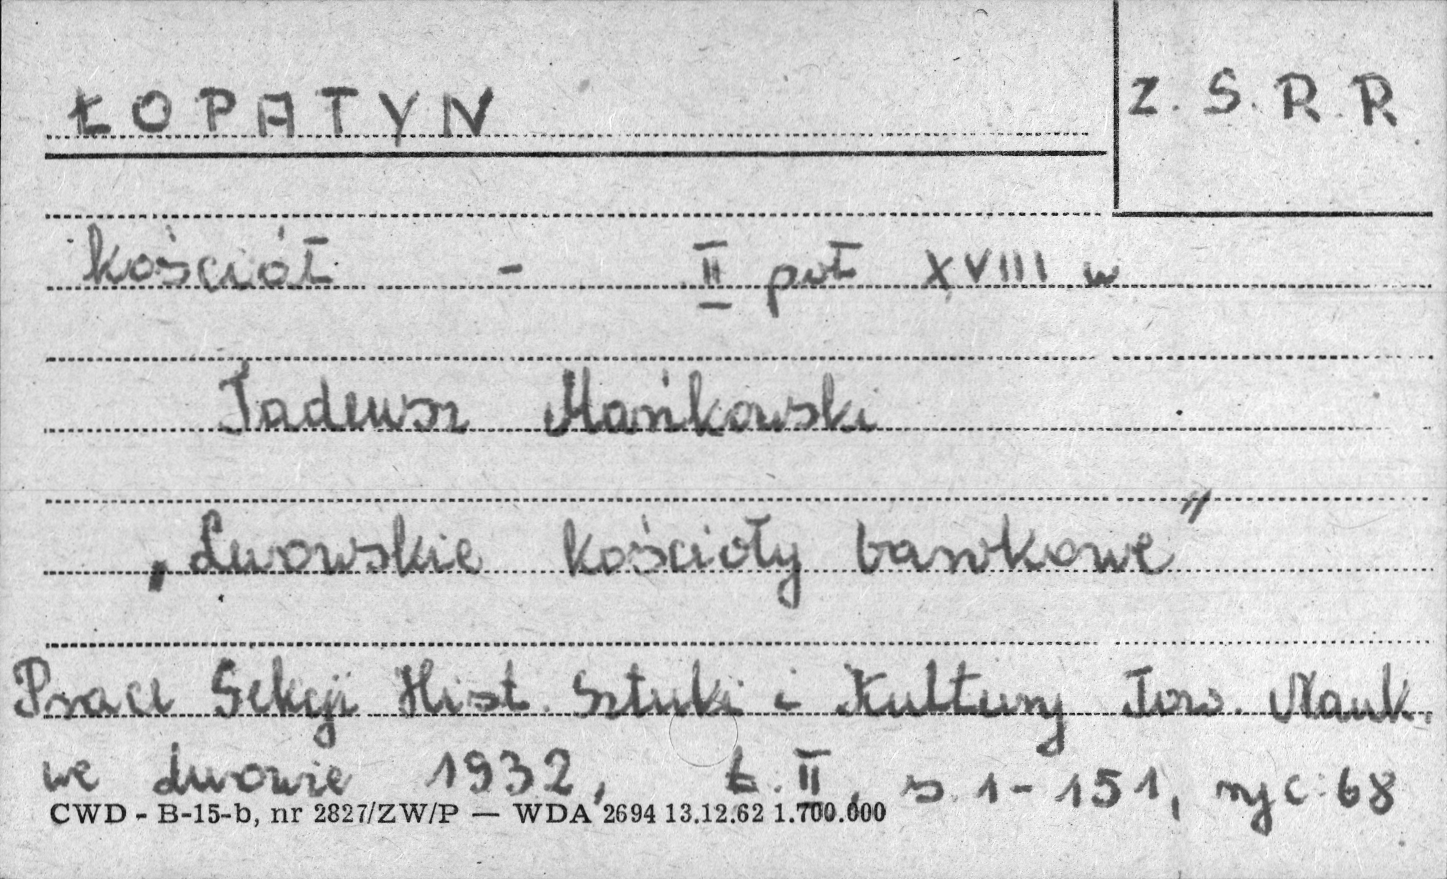 ŁOPATYN
Z.S.R.R
kościół - II poł XVIII w
Tadeusz Mańkowski
„Lwowskie kościoły barokowe"
Prace Sekcji Hist. Sztuki i Kultury Tow. Nauk.
we Lwowie 1932, t. II, s. 1-151, ryc. 68
CWD - B-15-b, nr 2827/ZW/P — WDA 2694 13.12.62 1.700.000